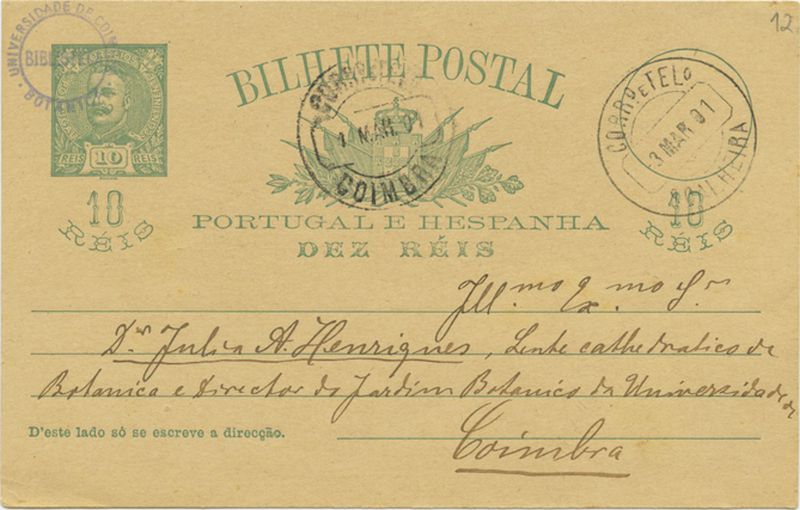 12
UNIVERSIDADE DE COIM
BIBLIOTH
BOTANICA
REIS 10 REIS
10
RÉIS
BILHETE POSTAL
PORTUGAL E HESPANHA
DEZ RÉIS
CORR
4 MAR. 01
COIMBRA
CORRº E TELº
3 MAR 01
10
RÉIS
Ill.mo Ex.mo Sr
Dr Julio A. Henriques, Lente cathedratico de
Botanica e Director do Jardim Botanico da Universidade de
Coimbra
D'este lado só se escreve a direcção.